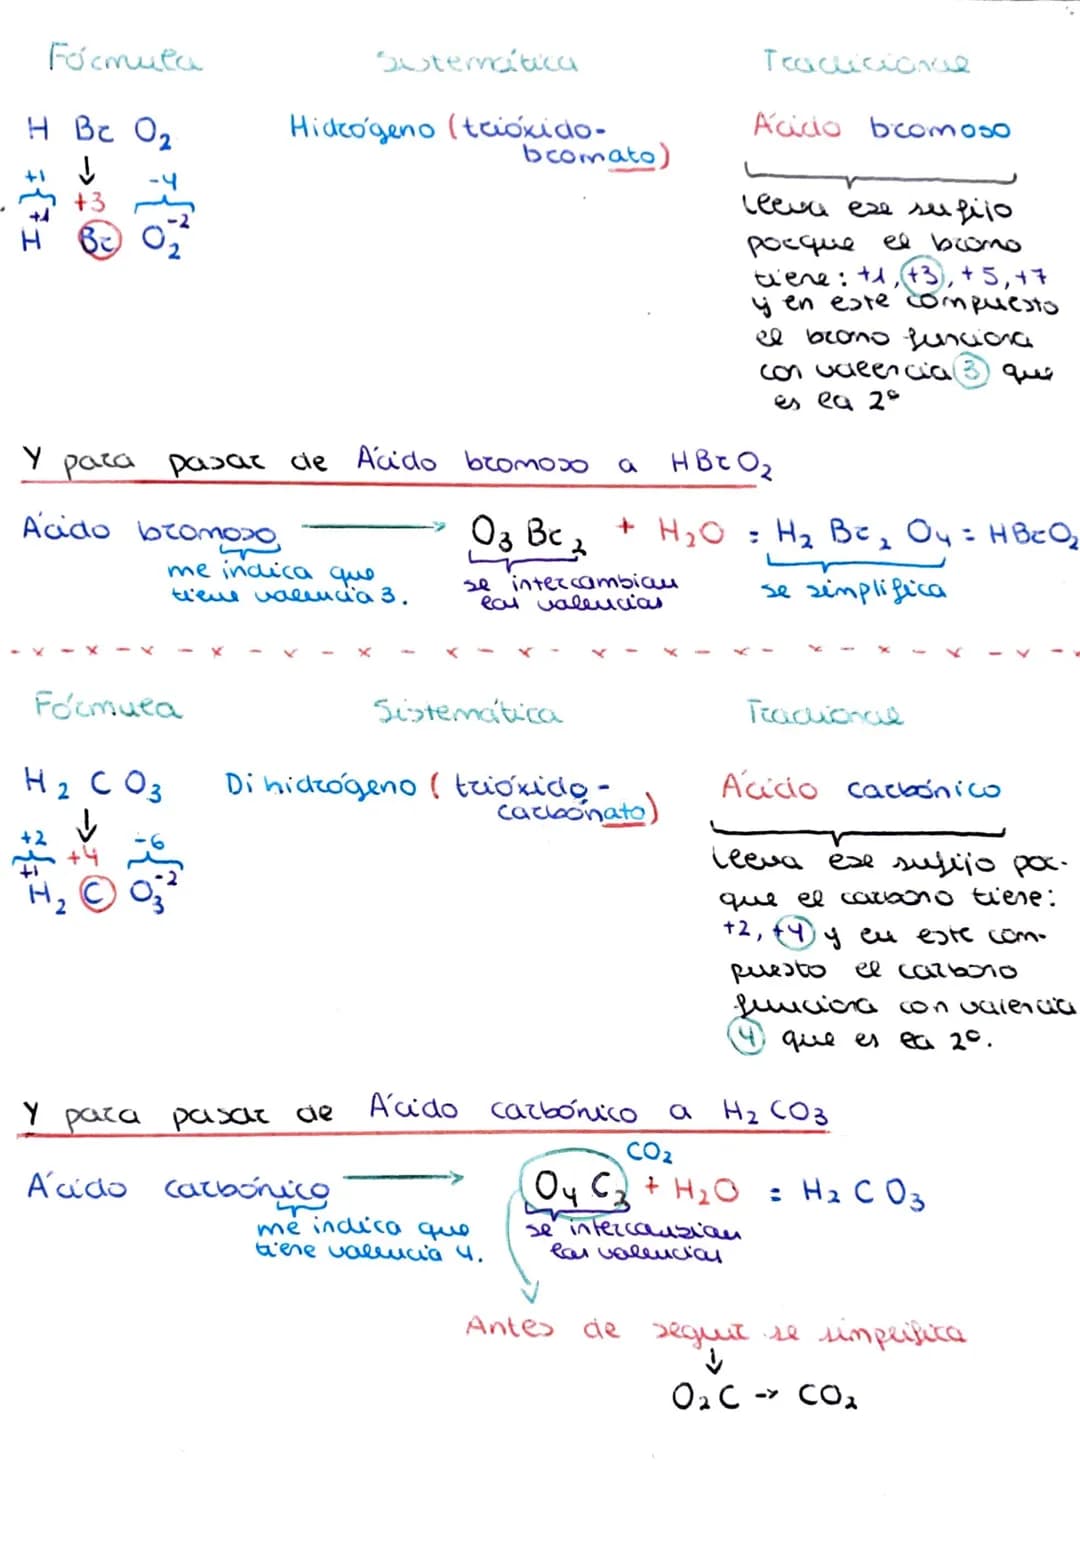 Fórmula Sistemática Tradicional
H Br O₂ Hidrógeno (trióxido- Ácido bromoso
bromato)
↓
+1 +3 -4
+1 -2
H Br O₂
lleva ese sufijo
porque el bromo
tiene: +1, +3, +5, +7
y en este compuesto
el bromo funciona
con valencia 3 que
es la 2ª
Y para pasar de Ácido bromoso a HBrO₂
Ácido bromoso → O₃ Br₂ + H₂O = H₂ Br₂ O₄ = HBrO₂
me indica que
tiene valencia 3.
se intercambian
las valencias
se simplifica
Fórmula Sistemática Tradional
H₂ C O₃ Dihidrógeno (trióxido- Ácido carbónico
carbonato)
↓
+2 +4 -6
+1 -2
H₂ C O₃
lleva ese sufijo por-
que el carbono tiene:
+2, +4 y en este com-
puesto el carbono
funciona con valencia
4 que es la 2ª.
Y para pasar de Ácido carbónico a H₂CO₃
CO₂
Ácido carbónico → O₄ C₂ + H₂O = H₂ C O₃
me indica que
tiene valencia 4.
se intercambian
las valencias
Antes de seguir se simplifica
↓
O₂C → CO₂